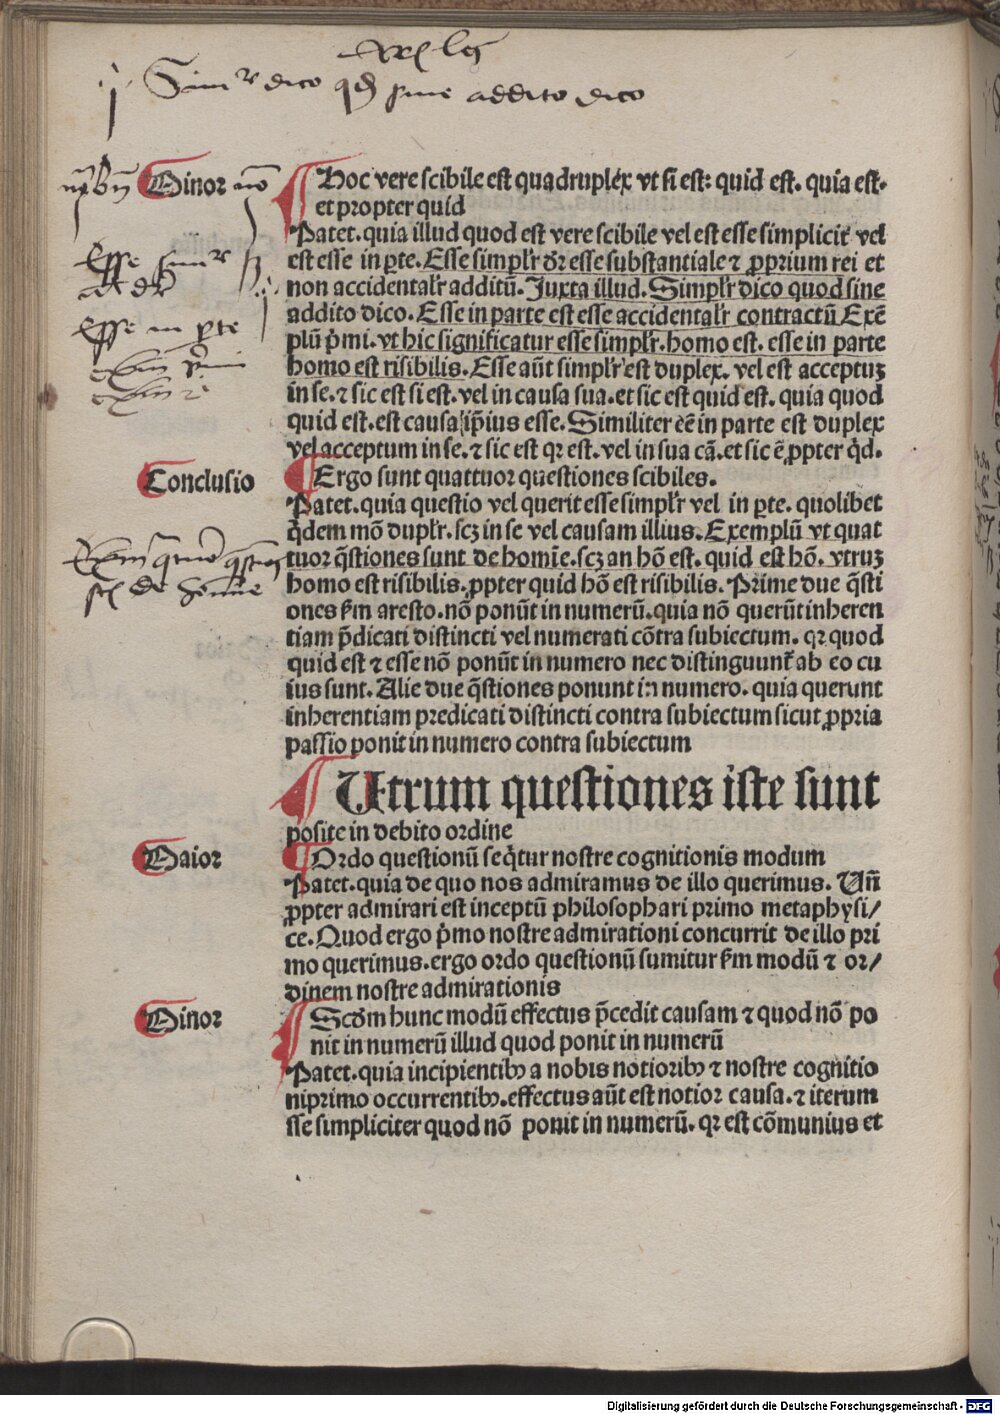 Simr dico qd sine addito dico
Minor
Hoc vere scibile est quadruplex vt si est: quid est. quia est.
et propter quid
Patet. quia illud quod est vere scibile vel est esse simplicit̄ vel
est esse in ꝑte. Esse simpl'r dr̄ esse substantiale ⁊ ꝓprium rei et
non accidental'r additū. Juxta illud. Simpl'r dico quod sine
addito dico. Esse in parte est esse accidental'r contractū Exē
plū p̄mi. vt hic significatur esse simpl'r. homo est. esse in parte
homo est risibilis. Esse aūt simpl'r est duplex. vel est acceptuꝫ
in se. ⁊ sic est si est. vel in causa sua. et sic est quid est. quia quod
quid est. est causa ip̄ius esse. Similiter eē in parte est duplex
vel acceptum in se. ⁊ sic est qꝛ est. vel in sua cā. et sic ē ꝓpter q̇d.
Conclusio
Ergo sunt quattuor questiones scibiles.
Patet. quia questio vel querit esse simpl'r vel in ꝑte. quolibet
q̇dem mō dupl'r. scꝫ in se vel causam illius. Exemplū vt quat
tuor q̄stiones sunt de homīe. scꝫ an hō est. quid est hō. vtruꝫ
homo est risibilis. ꝓpter quid hō est risibilis. Prime due q̄sti
ones ẜm aresto. nō ponūt in numerū. quia nō querūt inheren
tiam p̄dicati distincti vel numerati cōtra subiectum. qꝛ quod
quid est ⁊ esse nō ponūt in numero nec distinguunt̄ ab eo cu
ius sunt. Alie due q̄stiones ponunt in numero. quia querunt
inherentiam predicati distincti contra subiectum sicut ꝓpria
passio ponit in numero contra subiectum
Utrum questiones iste sunt
posite in debito ordine
Maior
Ordo questionū seq̇tur nostre cognitionis modum
Patet. quia de quo nos admiramus de illo querimus. Vn̄
ꝓpter admirari est inceptū philosophari primo metaphysi/
ce. Quod ergo p̄mo nostre admirationi concurrit de illo pri
mo querimus. ergo ordo questionū sumitur ẜm modū ⁊ or/
dinem nostre admirationis
Minor
Scd̄m hunc modū effectus p̄cedit causam ⁊ quod nō po
nit in numerū illud quod ponit in numerū
Patet. quia incipientibꝫ a nobis notioribꝫ ⁊ nostre cognitio
ni primo occurrentibꝫ. effectus aūt est notior causa. ⁊ iterum
esse simpliciter quod nō ponit in numerū. qꝛ est cōmunius et
Esse in ꝑte
Digitalisierung gefördert durch die Deutsche Forschungsgemeinschaft - DFG